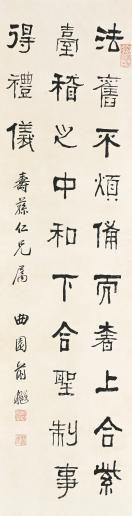 法舊不煩備而不奢上合紫
臺稽之中和下合聖制事
得禮儀
壽蓀仁兄屬 曲園俞樾